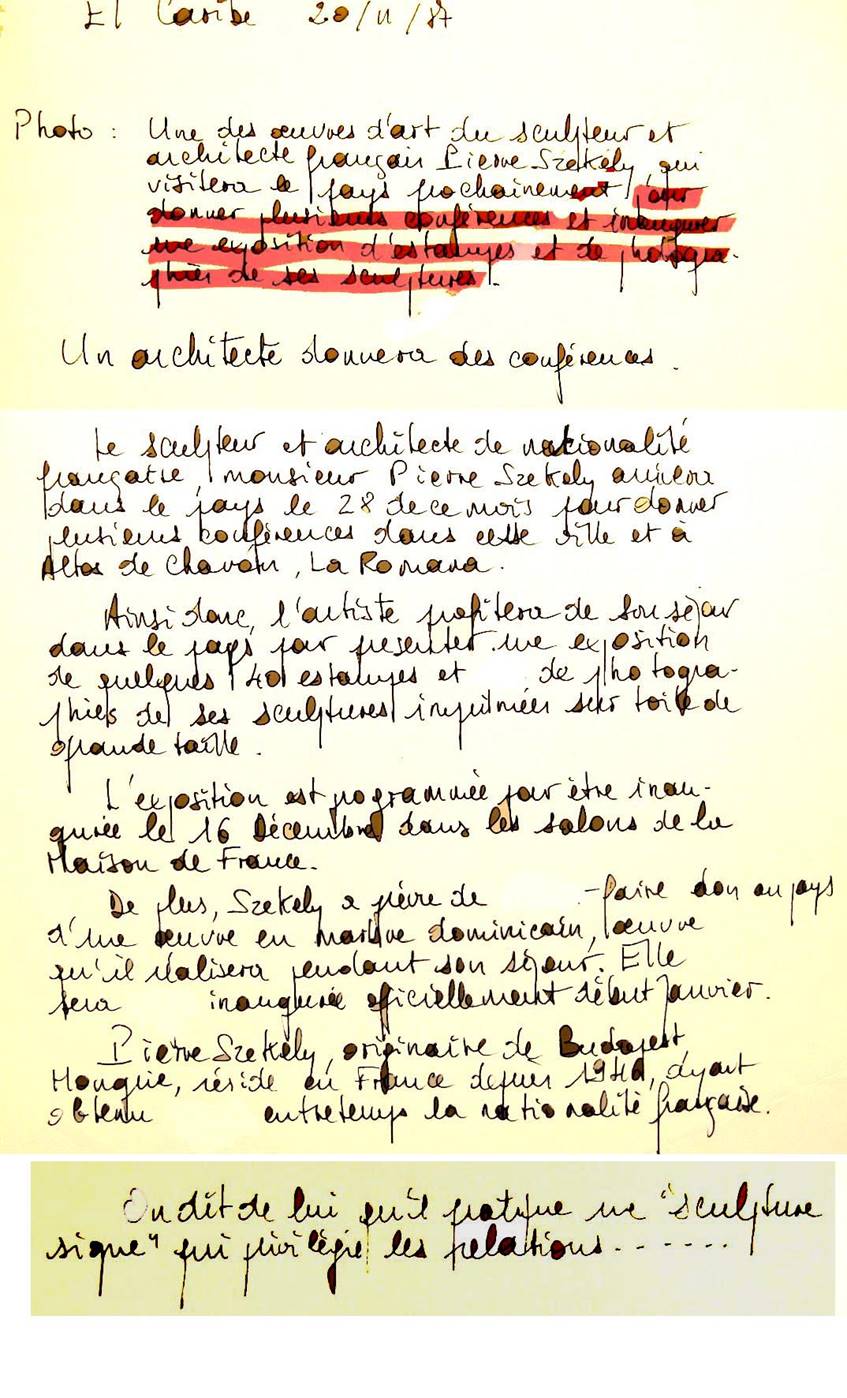 El Caribe 20/11/87
Photo : Une des œuvres d'art du sculpteur et
architecte français Pierre Szekely qui
visitera le pays prochainement pour
donner plusieurs conférences et inaugurer
une exposition d'estampes et de photogra-
phies de ses sculptures.
Un architecte donnera des conférences.
Le sculpteur et architecte de nationalité
française, monsieur Pierre Szekely arrivera
dans le pays le 28 de ce mois pour donner
plusieurs conférences dans cette ville et à
Altos de Chavón, La Romana.
Ainsi donc, l'artiste profitera de son séjour
dans le pays pour présenter une exposition
de quelques 40 estampes et de photogra-
phies de ses sculptures imprimées sur toile de
grande taille.
L'exposition est programmée pour être inau-
gurée le 16 Décembre dans les salons de la
Maison de France.
De plus, Szekely a prévu de - faire don au pays
d'une œuvre en marbre dominicain, œuvre
qu'il réalisera pendant son séjour. Elle
sera inaugurée officiellement début Janvier.
Pierre Szekely, originaire de Budapest,
Hongrie, réside en France depuis ayant
obtenu entretemps la nationalité française.
On dit de lui qu'il pratique une "sculpture
signe" qui privilégie les relations.......